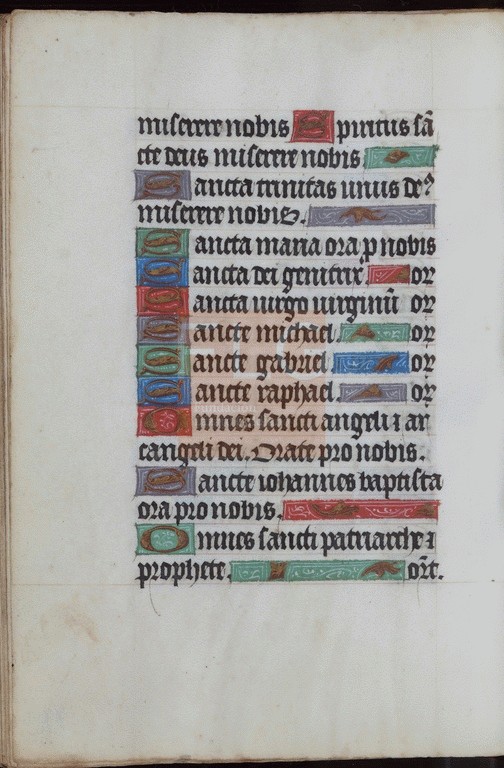 miserere nobis Spiritus sã
cte deus miserere nobis
Sancta trinitas unus de?
miserere nobis.
Sancta maria ora p nobis
Sancta dei genitrix. or
Sancta uirgo uirginũ or
Sancte michael. or
Sancte gabriel or
Sancte raphael. or
Omnes sancti angeli ⁊ ar
cangeli dei. Orate pro nobis.
Sancte iohannes baptista
ora pro nobis.
Omnes sancti patriarche ⁊
prophete. ort.